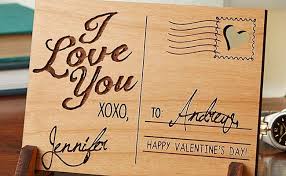 I
Love
You
XOXO,
Jennifer
TO Andrew,
HAPPY VALENTINE'S DAY!